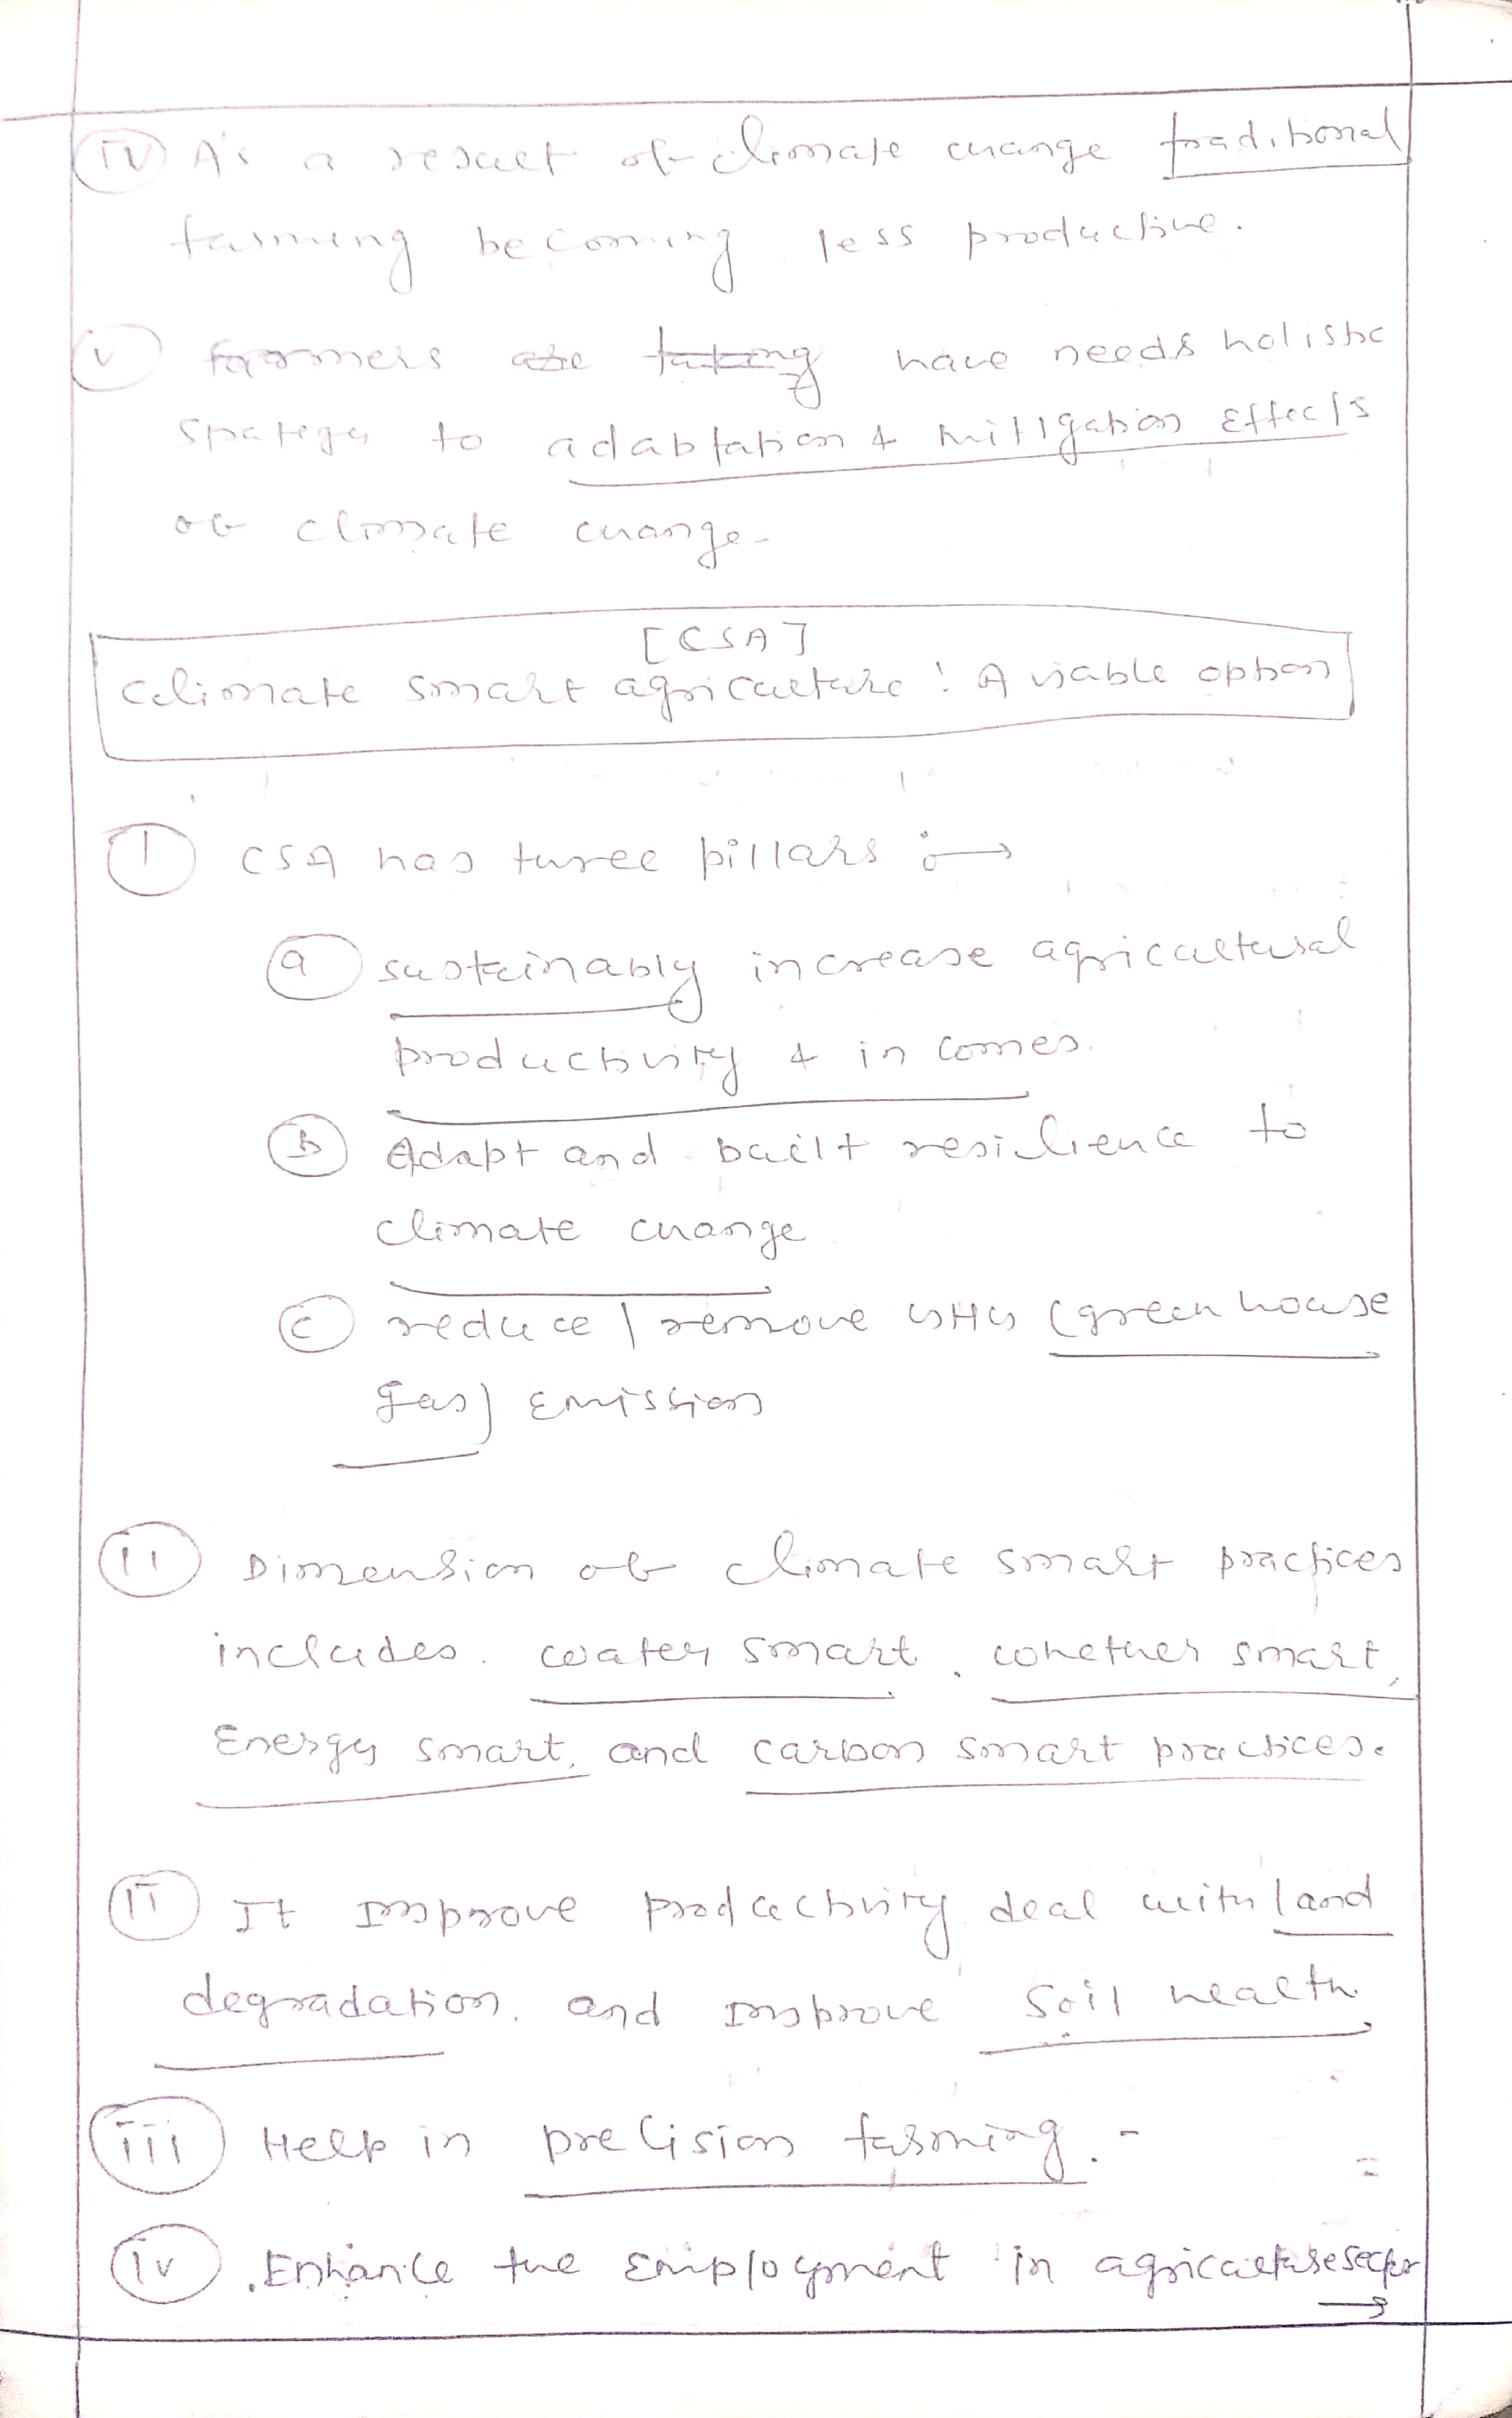 (iv) As a result of climate change traditional
farming becoming less productive.
(v) farmers are taking have needs holistic
strategy to adabtation & mitigation Effects
of climate change-
[CSA]
Climate smart agriculture : A viable option
(1) CSA has three pillars :→
(a) sustainably increase agricultural
productivity & incomes.
(b) Adapt and built resilience to
climate change
(c) reduce / remove GHG (green house
gas) Emission
(ii) Dimension of climate smart practices
includes. water smart, whether smart,
Energy smart, and carbon smart practices.
(ii) It Improve productivity deal with land
degradation, and Improve soil health.
(iii) Help in precision farming.-
(iv) Enhance the Employment in agriculture sector
→